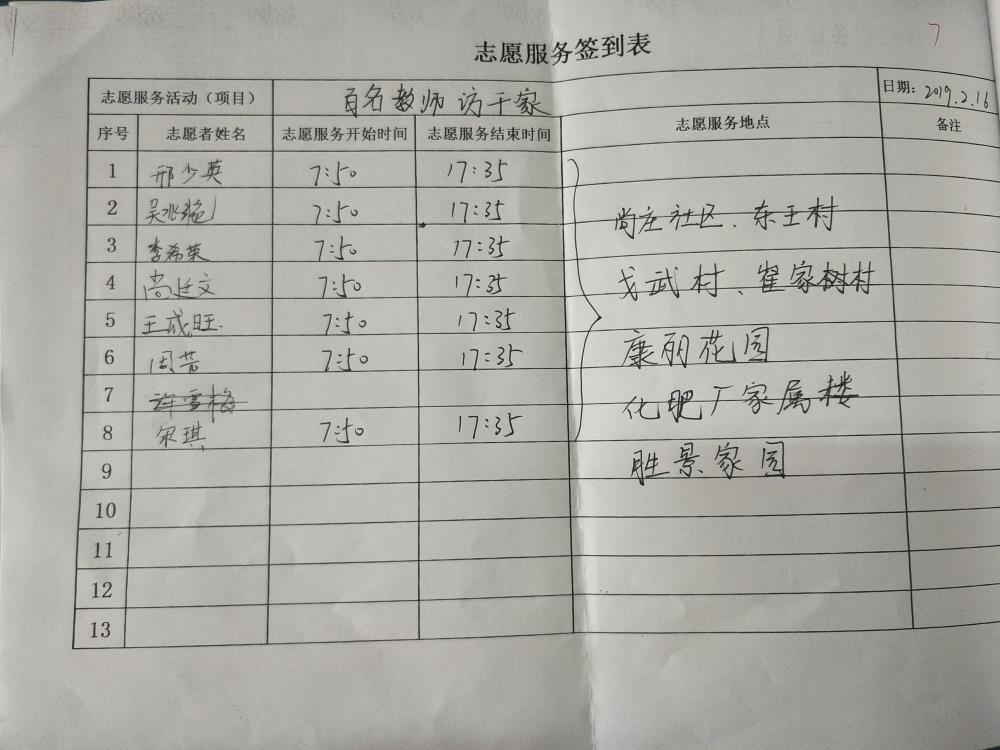 7
志愿服务签到表
志愿服务活动（项目） 百名教师访千家 日期：2019.2.16
序号 志愿者姓名 志愿服务开始时间 志愿服务结束时间 志愿服务地点 备注
1 邢少英 7:50 17:35
2 吴兆艳 7:50 17:35
尚庄社区、东王村
3 李希英 7:50 17:35
4 尚廷文 7:50 17:35
戈武村、崔家树村
5 王成旺. 7:50 17:35
6 周芳 7:50 17:35
康丽花园
7 许雪梅
化肥厂家属楼
8 宋琪 7:50 17:35
胜景家园
9
10
11
12
13